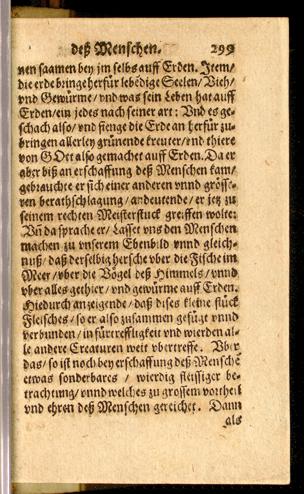 deß Menschen. 299
nen saamen bey jm selbs auff Erden. Jtem/
die erde bringe herfür lebēdige Seelen/ Vieh/
vnd Gewürme/ vnd was sein Leben hat auff
Erden/ ein jedes nach seiner art: Vnd es ge-
schach also/ vnd fienge die Erde an herfür zu-
bringen allerley grünende kreuter/ vnd thiere
von GOtt also gemachet auff Erden. Da er
aber biß an erschaffung deß Menschen kam/
gebrauchte er sich einer anderen vnnd grösse-
ren berathschlagung/ andeutende/ er jetz zu
seinem rechten Meisterstuck greiffen wolte:
Vñ da sprache er/ Lasset vns den Menschen
machen zu vnserem Ebenbild vnnd gleich-
nuß/ daß derselbig hersche vber die Fische im
Meer/ vber die Vögel deß Himmels/ vnnd
vber alles gethier/ vnd gewürme auff Erden.
Hiedurch anzeigende/ daß dises kleine stück
Fleisches/ so er also zusammen gefügt vnnd
verbunden/ in fürtreffligkeit vnd wierden al-
le andere Creaturen weit vbertreffe. Vber
das/ so ist noch bey erschaffung deß Menschē
etwas sonderbares/ wierdig fleissiger be-
trachtung/ vnnd welches zu grossem vortheil
vnd ehren deß Menschen gereichet. Dann
als